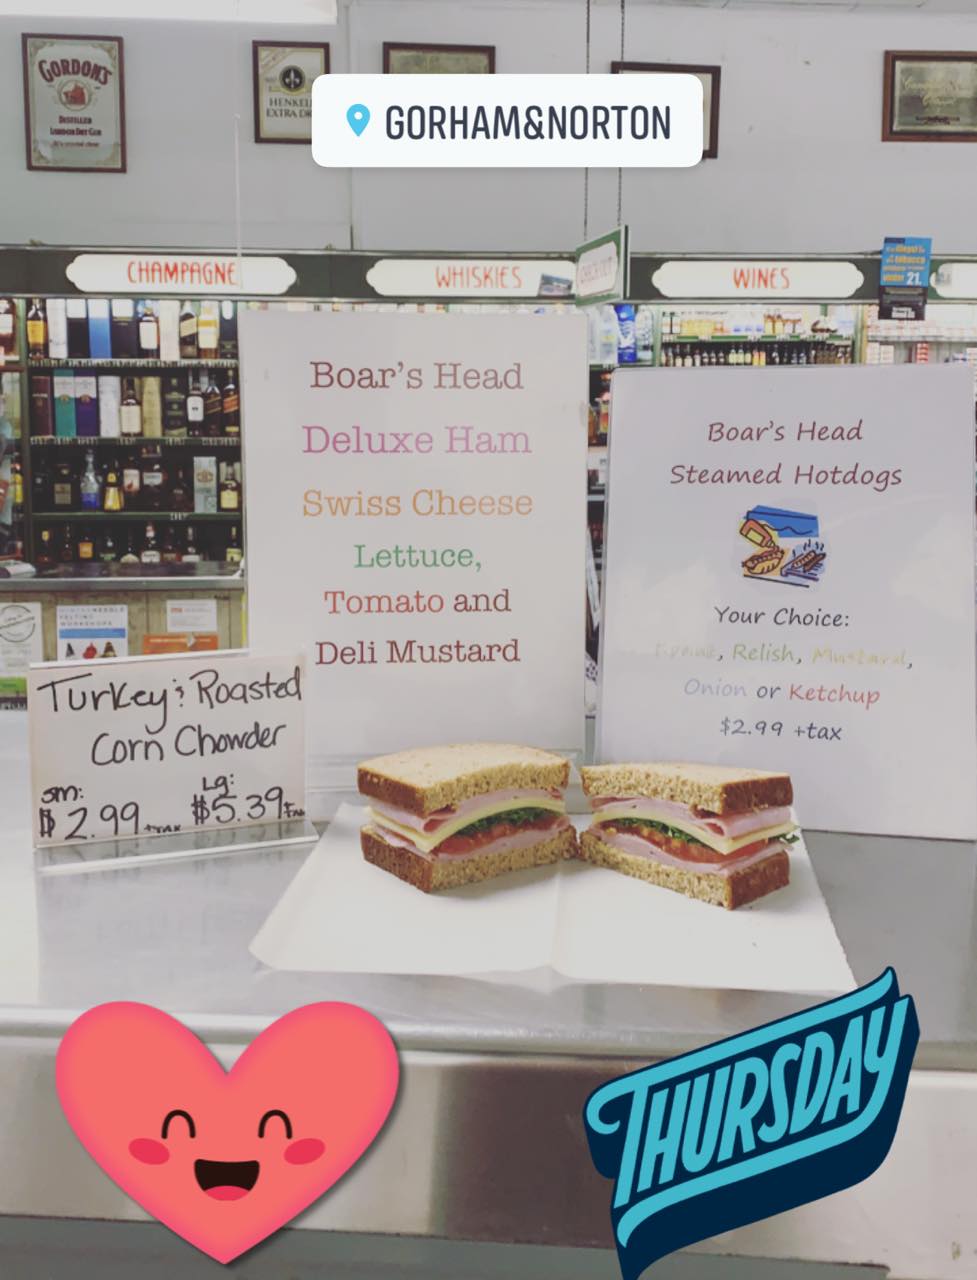 GORDON'S
DISTILLED
LONDON DRY GIN
It's crystal clear
GORHAM&NORTON
CHAMPAGNE
WHISKIES
CHECK OUT
WINES
21.
Boar's Head
Deluxe Ham
Swiss Cheese
Lettuce,
Tomato and
Deli Mustard
Boar's Head
Steamed Hotdogs
Your Choice:
Relish, Mustard,
Onion or Ketchup
$2.99 +tax
Turkey & Roasted
Corn Chowder
sm:
$2.99 +tax
Lg:
$5.39 +tax
THURSDAY